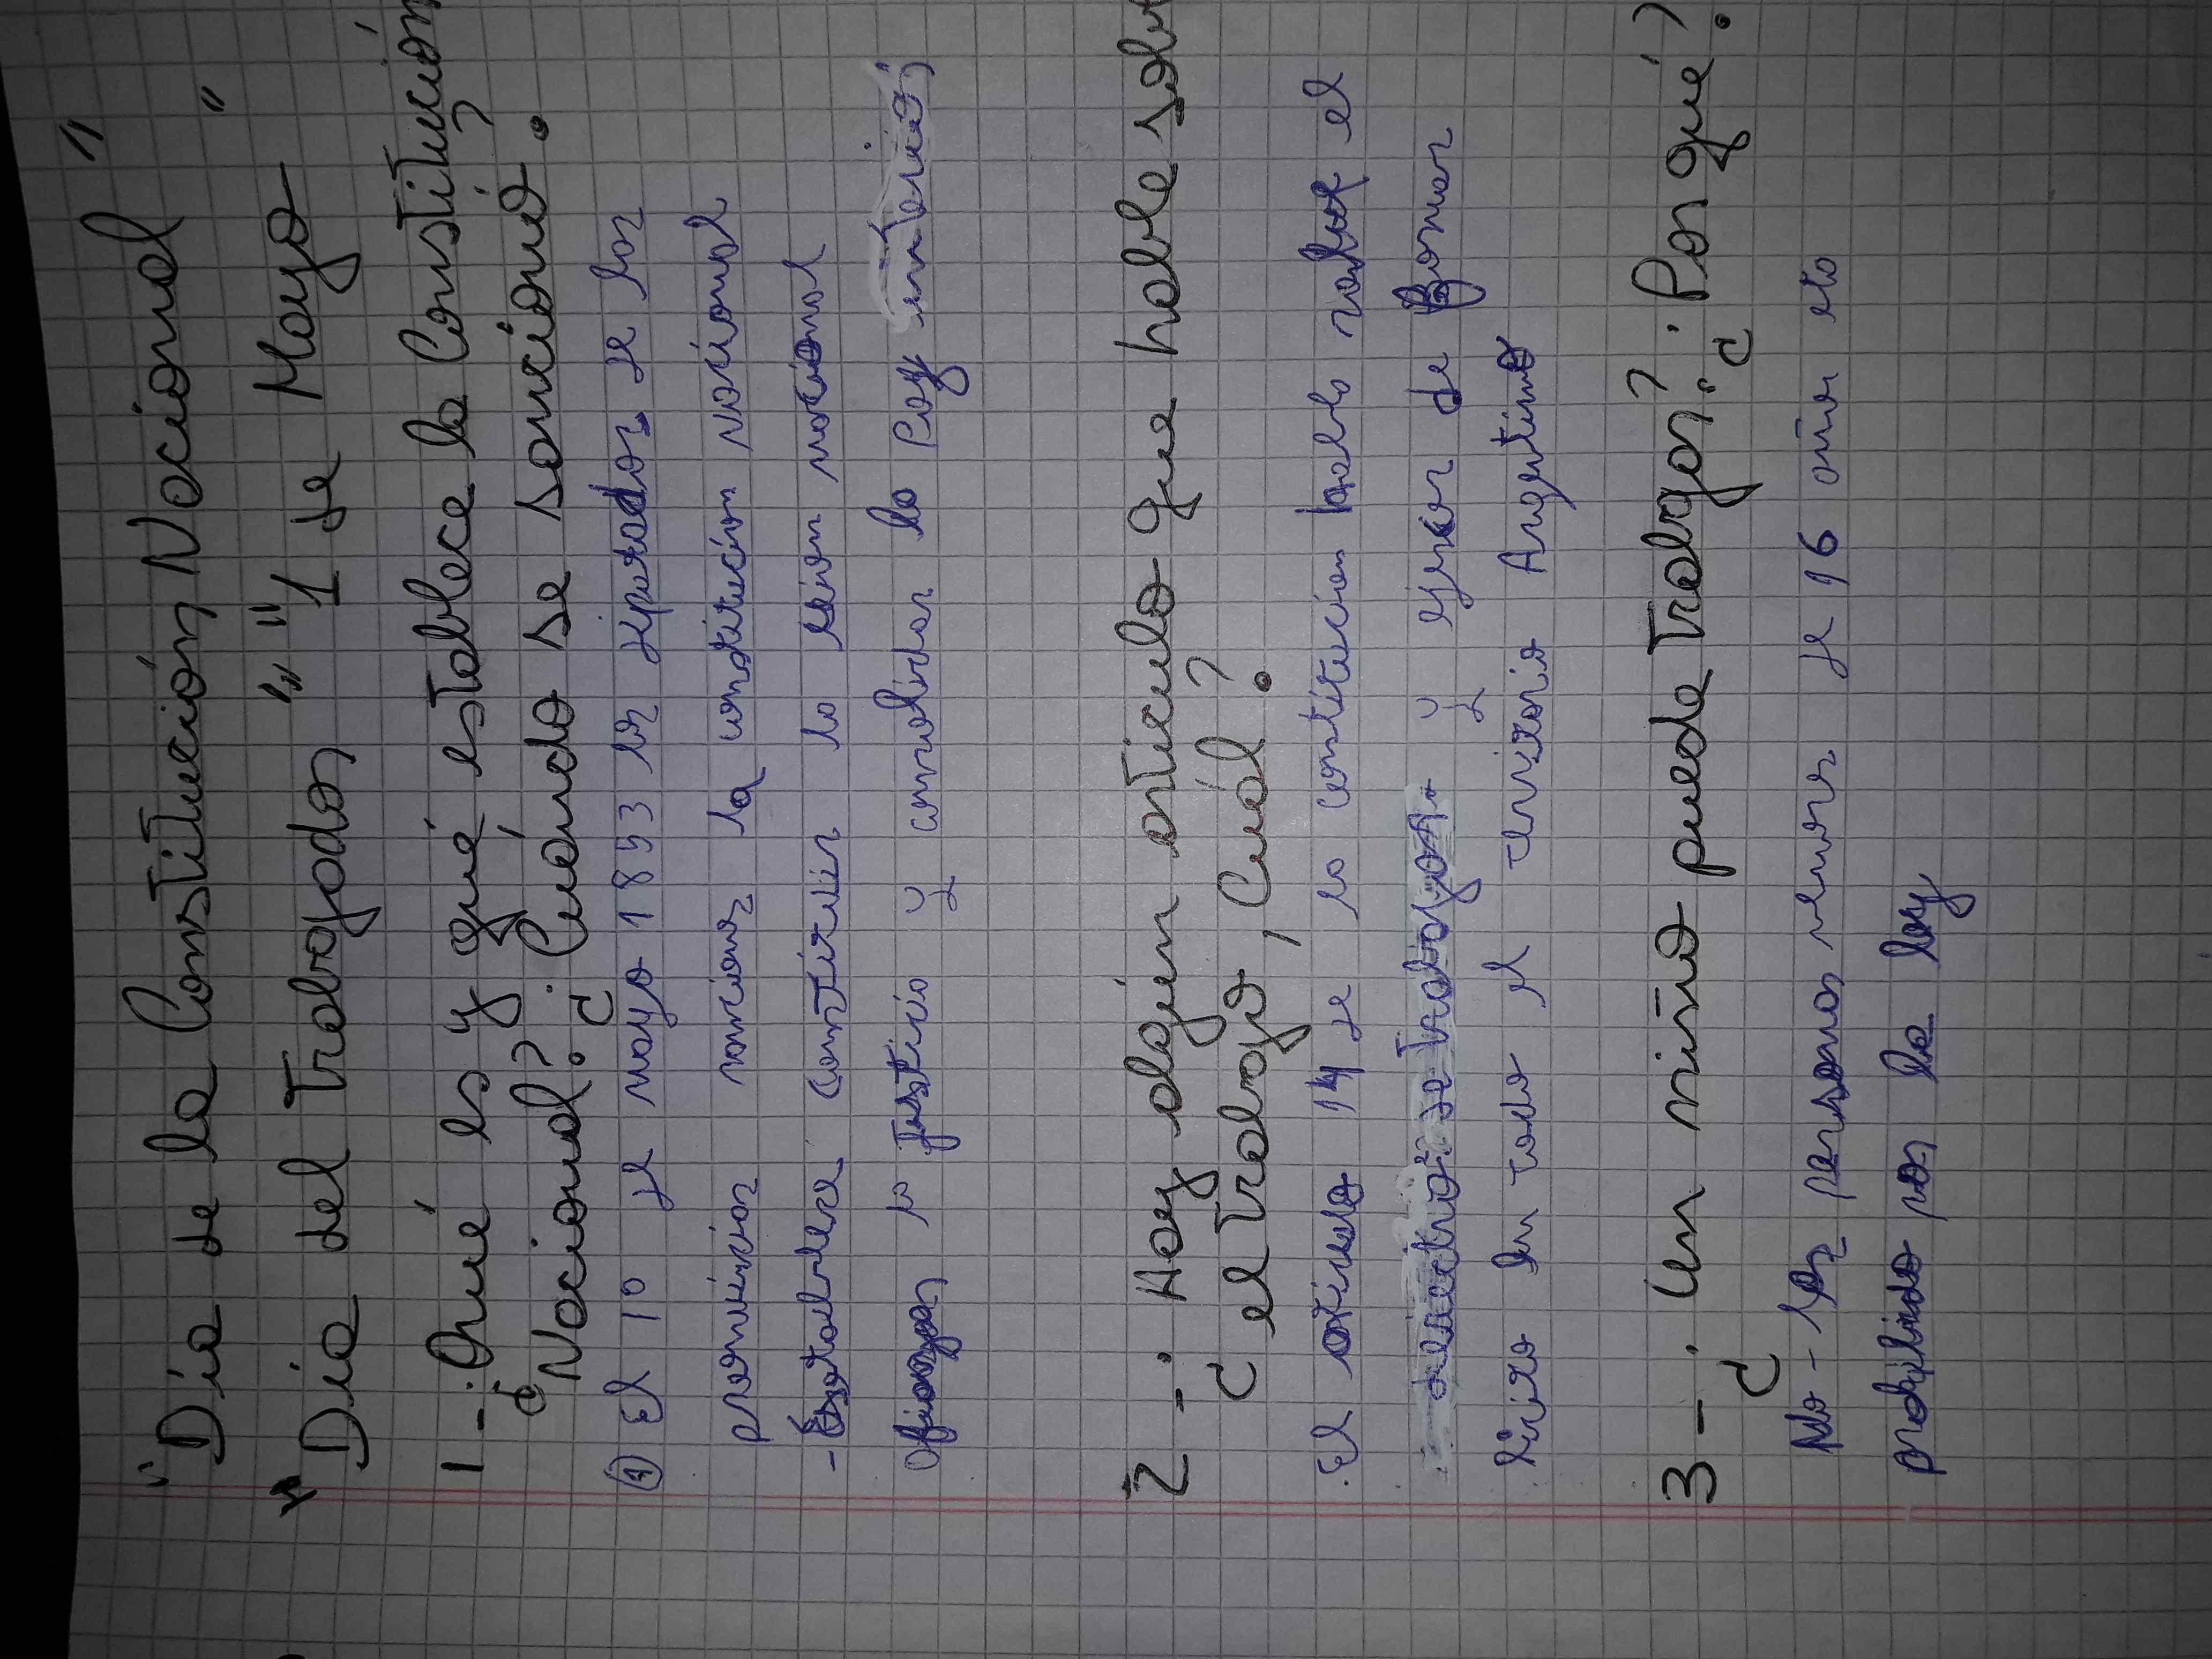 "Día de la Constitución Nacional"
"Día del Trabajador" "1 de Mayo"
1-¿Qué es y qué establece la Constitución
Nacional? ¿Cuándo se sancionó?
① El 1º de mayo 1853 los diputados de las
provincias la constitución nacional
- Establecer constituir la unión nacional
Afianzar la justicia y consolidar la Paz interior;
2-¿Hay algún artículo que hable sob
el trabajo, Cuál?
.El artículo 14 de la constitución habla sobre el
derecho: de trabajar y ejercer de
lícita en todo el territorio Argentino
3-¿Un niño puede trabajar? ¿Por qué?
No - las personas menor de 16 años esta
prohibido por la ley